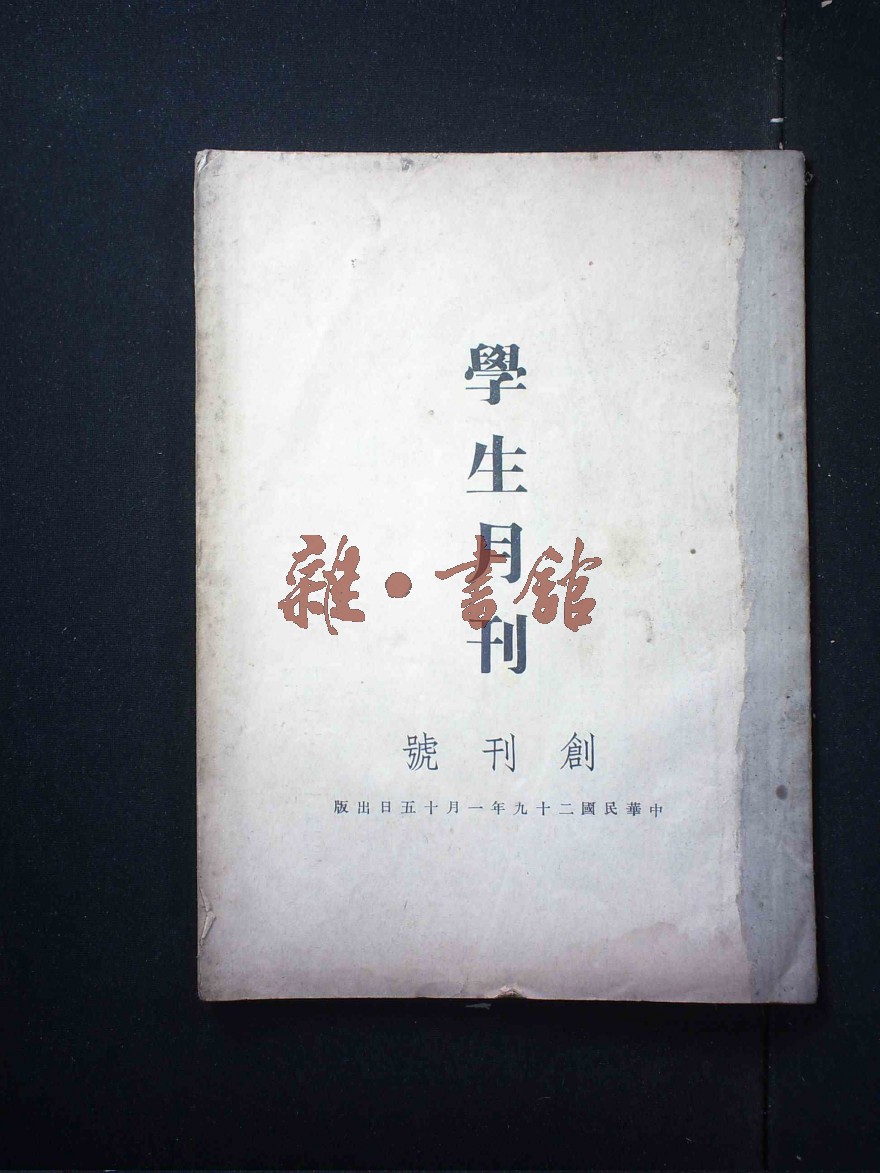 學生月刊
雜·書館
創刊號
中華民國二十九年一月十五日出版